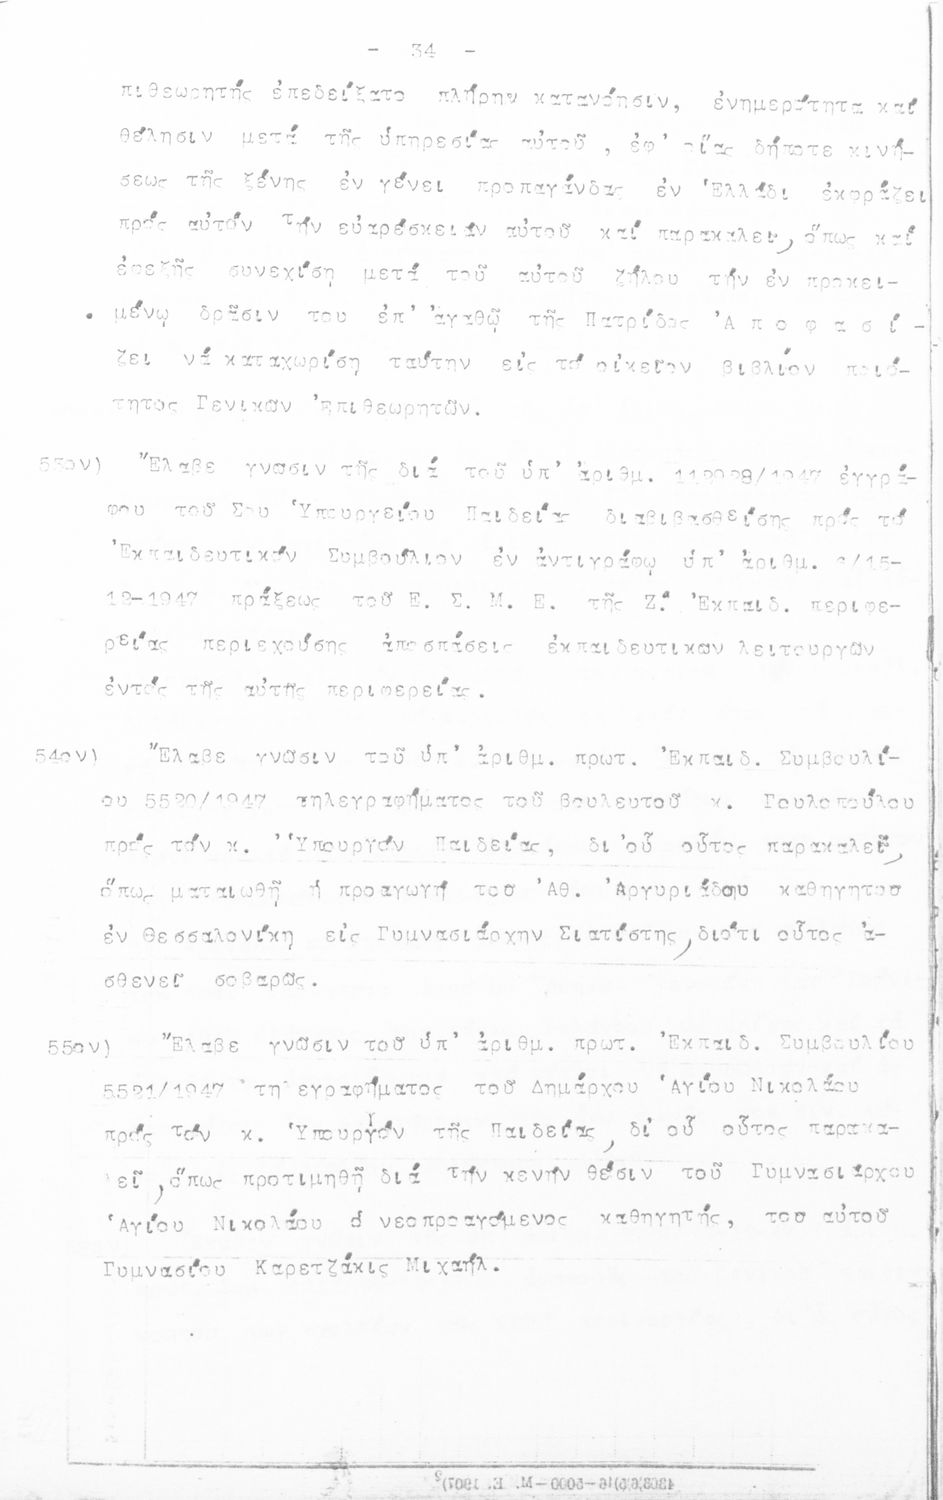 - 34 -
πιθεωρητής ἐπεδείξατο πλήρην κατανόησιν, ἐνημερότητα καί
θέλησιν μετά τῆς ὑπηρεσίας αὐτοῦ , ἐφ' οἵας δήποτε κινή-
σεως τῆς ξένης ἐν γένει προπαγάνδας ἐν Ἑλλάδι ἐκφράζει
πρός αὐτόν τήν εὐαρέσκειάν αὐτοῦ καί παρακαλεῖ, ὅπως καί
ἐφεξῆς συνεχίση μετά τοῦ αὐτοῦ ζήλου τήν ἐν προκει-
μένῳ δρᾶσιν του ἐπ' ἀγαθῷ τῆς Πατρίδος 'Α π ο φ α σ ί -
ζει νά καταχωρίση ταύτην εἰς τό οἰκεῖον βιβλίον ποιό-
τητος Γενικῶν Ἐπιθεωρητῶν.
53ον) Ἔλαβε γνῶσιν τῆς διά τοῦ ὑπ' ἀριθμ. 112028/1947 ἐγγρά-
φου τοῦ Σου Ὑπουργείου Παιδείας διαβιβασθείσης πρός τό
Ἐκπαιδευτικόν Συμβούλιον ἐν ἀντιγράφῳ ὑπ' ἀριθμ. /15-
12-1947 πράξεως τοῦ Ε. Σ. Μ. Ε. τῆς Ζ.ᵃ Ἐκπαιδ. περιφε-
ρείας περιεχούσης ἀποσπάσεις ἐκπαιδευτικῶν λειτουργῶν
ἐντός τῆς αὐτῆς περιφερείας.
54ον) Ἔλαβε γνῶσιν τοῦ ὑπ' ἀριθμ. πρωτ. Ἐκπαιδ. Συμβουλί-
ου 5520/1947 τηλεγραφήματος τοῦ βουλευτοῦ κ. Γουλοπούλου
πρός τόν κ. Ὑπουργόν Παιδείας, δι'οὗ οὗτος παρακαλεῖ,
ὅπως ματαιωθῆ ἡ προαγωγή του Ἀθ. Ἀργυριάδου καθηγητοῦ
ἐν Θεσσαλονίκη εἰς Γυμνασιάρχην Σιατίστης, διότι οὗτος ἀ-
σθενεῖ σοβαρῶς.
55ον) Ἔλαβε γνῶσιν τοῦ ὑπ' ἀριθμ. πρωτ. Ἐκπαιδ. Συμβουλίου
5521/1947 τηλεγραφήματος τοῦ Δημάρχου Ἁγίου Νικολάου
πρός τόν κ. Ὑπουργόν τῆς Παιδείας, δι' οὗ οὗτος παρακα-
λεῖ, ὅπως προτιμηθῆ διά τήν κενήν θέσιν τοῦ Γυμνασιάρχου
Ἁγίου Νικολάου ὁ νεοπροαγόμενος καθηγητής, του αὐτοῦ
Γυμνασίου Καρετζάκις Μιχαήλ.